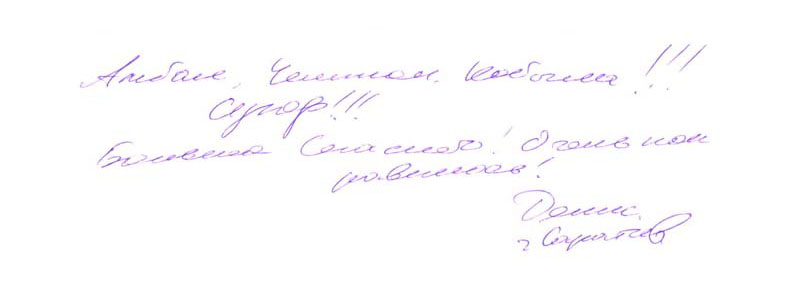 Чемпион, кобыла!!!
Супер!!!
Большое Спасибо! Очень пон
равилось!
Денис.
г Саратов